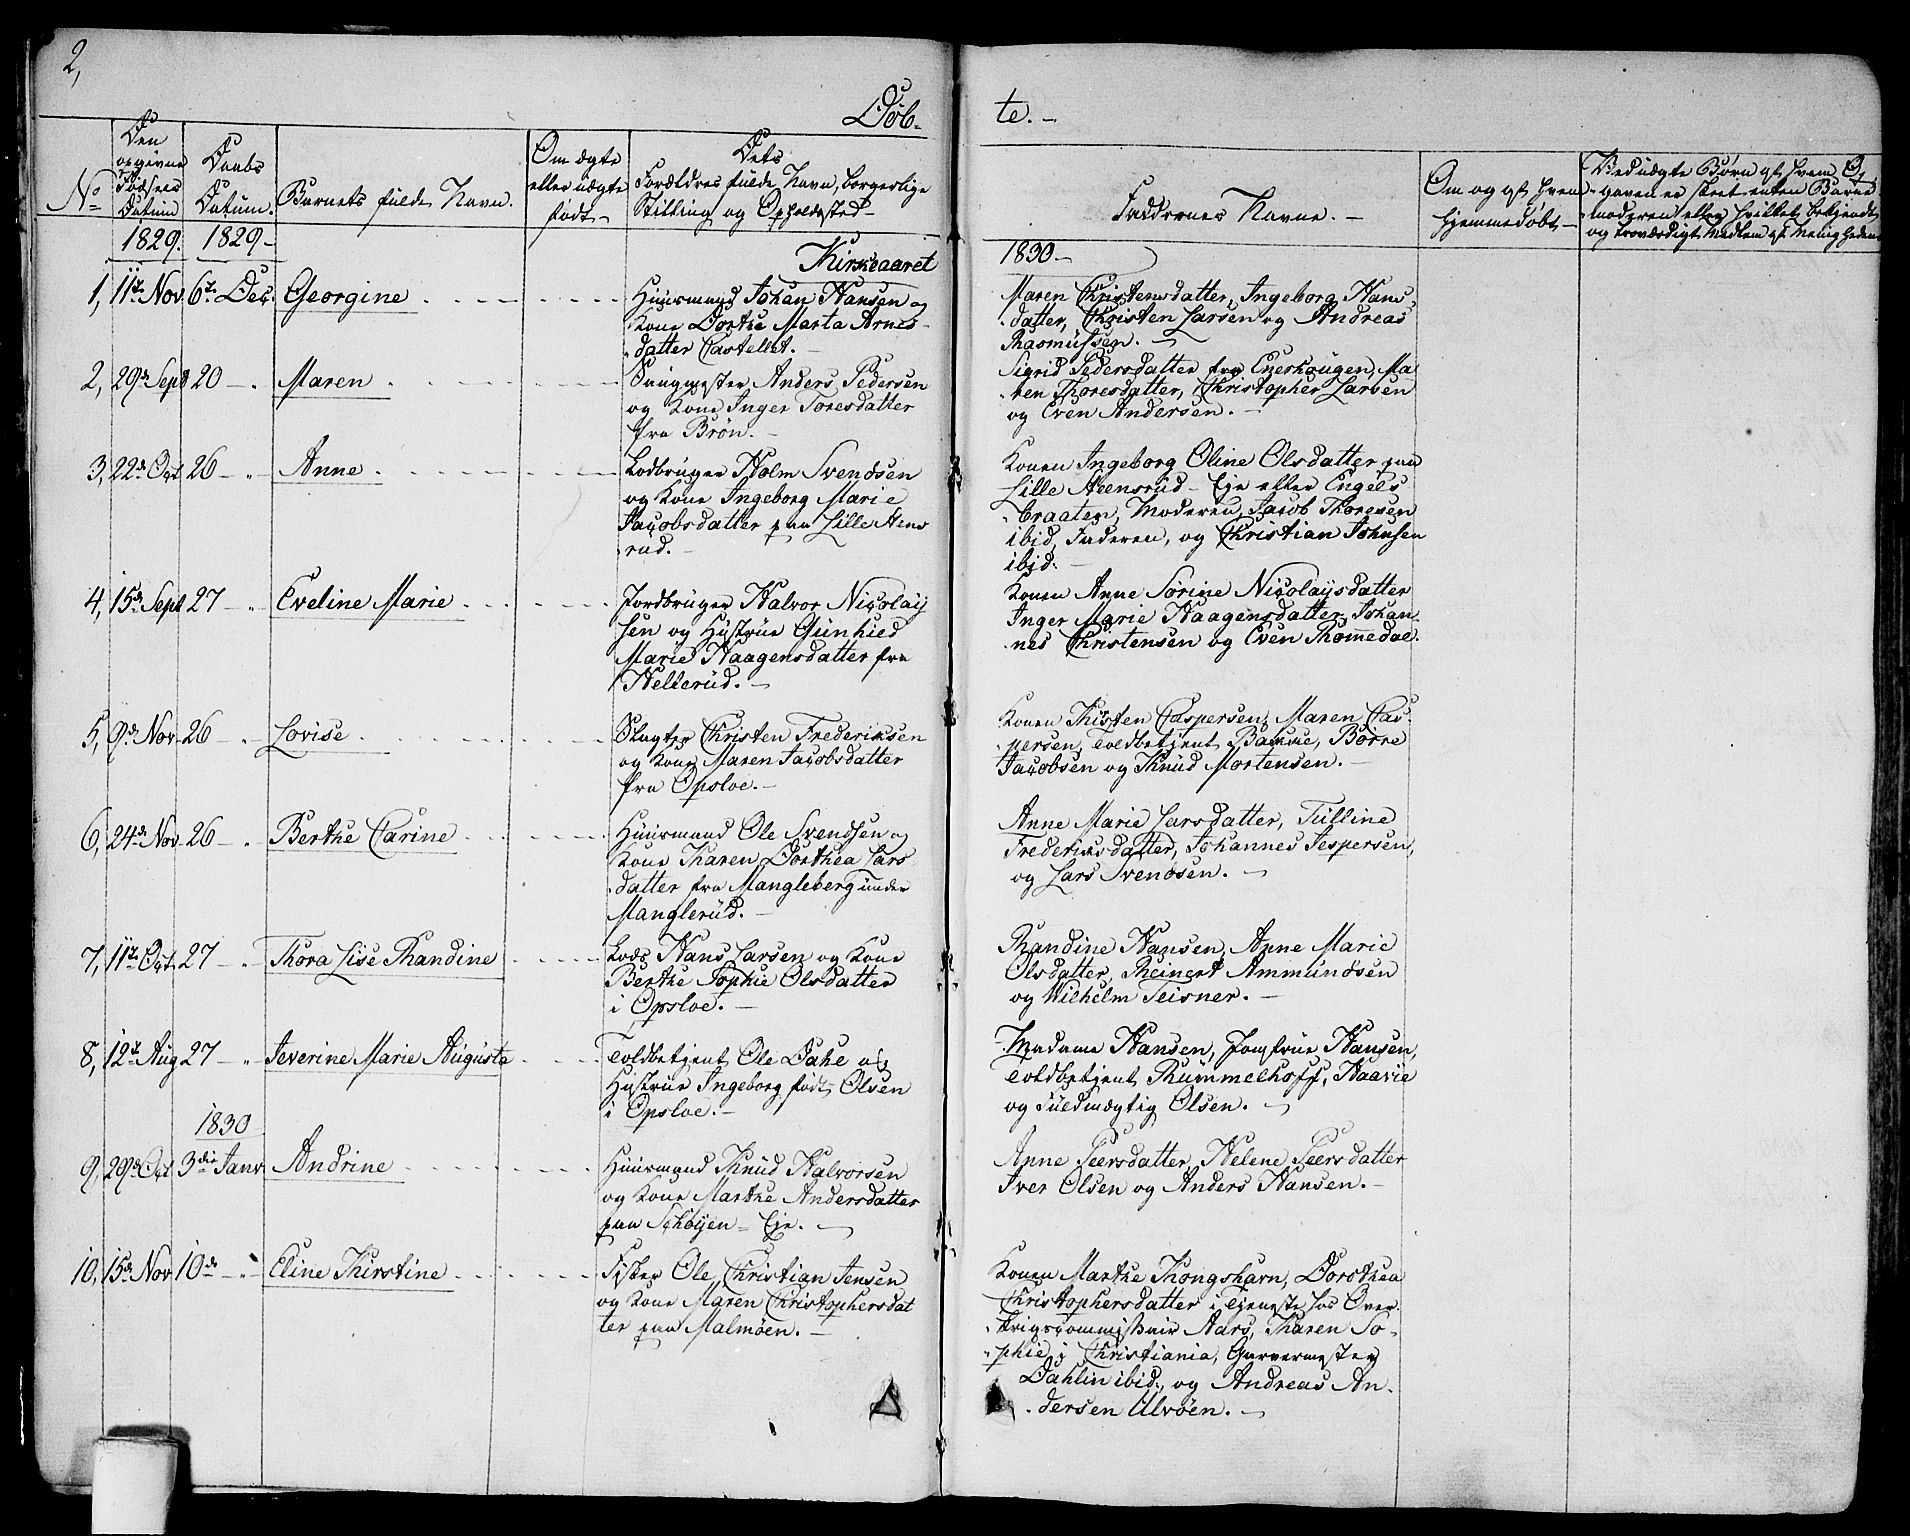 2,
Døb-
te. -
No
Den opgivne Fødsels Datum
Daabs Datum.
Barnets fulde Navn.
Om ægte eller uægte født -
Dets Forældres fulde Navn, borgerlige Stilling og Opholdssted -
Faddernes Navne. -
Om og af hvem hjemmedøbt -
Ved uægte Børn af hvem Op-
gaven er skeet enten Barne
moderen eller hvilket bekjendt
og troværdigt Medlem af Menigheden
1829. 1829 -
Kirkeaaret
1830 -
1, 11te Nov 6te Dec. Georgine
Huusmand Johan Hansen og
Kone Dorthe Marta Arnes-
datter Castellet. -
Maren Christensdatter, Ingeborg Hans-
datter, Christen Larsen og Andreas
Rasmussen. -
2, 29de Sept 20 - " Maren
Saugmester Anders Pedersen
og Kone Inger Toresdatter
fra Brøn. -
Sigrid Pedersdatter fra Enerhougen, Ma-
ren Thoresdatter, Christopher Larsen
og Even Andersen. -
3, 22de Oct 26 - " Anne
Lodbruger Holm Svendsen
og Kone Ingeborg Marie
Jacobsdatter paa Lille Aens
rud. -
Konen Ingeborg Oline Olsdatter paa
Lille Aeensrud - Eje efter Engels
braaten, Moderen, Jacob Thoresen
ibid, Faderen, og Christian Johnsen
ibid. -
4, 15de Sept 27 - " Eveline Marie
Jordbruger Halvor Nicolay
sen og Hustrue Gunhied
Marie Haagensdatter fra
Hellerud. -
Konen Anne Sorine Nicolaysdatter
Inger Marie Haagensdatter, Johan-
nes Christensen og Even Thomedal.
5, 9de Nov 26 - " Lovise
Slagter Christen Frederiksen
og Kone Maren Jacobsdatter
fra Opsloe. -
Konen Thisten Caspersen, Maren Cas-
persen, Toldbetjent Børre
Jacobsen og Knud Mortensen. -
6, 24de Nov 26 - " Berthe Carine
Huusmand Ole Svendsen og
Kone Karen Dorthea Lars
datter fra Mangleberg under
Manglerud. -
Anne Marie Larsdatter, Tulline
Frederiksdatter, Johannes Jespersen,
og Lars Svendsen. -
7, 11te Oct 27 - " Thora Lise Randine
Lods Hans Larsen og Kone
Berthe Sophie Olsdatter
i Opsloe. -
Randine Hansen, Anne Marie
Olsdatter, Reinert Ammundsen
og Wilhelm Teisner. -
8, 12te Aug 27 - " Severine Marie Augusta
Toldbetjent Ole Dahl og
Hustrue Ingeborg født Olsen
i Opsloe. -
Madame Hansen, Jomfrue Hansen,
Toldbetjent Rummelhoff, Haavie
og Fuldmægtig Olsen. -
1830
9, 29de Oct 3die Janv Andrine
Huusmand Knud Halvorsen
og Kone Marthe Andersdatter
paa Schøyen - Eje. -
Anne Peersdatter, Helene Peersdatter
Iver Olsen og Anders Hansen. -
10, 15de Nov 10de - " Eline Kirstine
Fisker Ole Christian Jensen
og Kone Maren Christophersdat
ter paa Malmøen. -
Konen Marthe Kongshavn, Dorothea
Christophersdatter i Tjeneste hos Over-
krigscommissair Aars, Karen So-
phie i Christiania, Garvermester
Dahlin ibid., og Andreas An-
dersen Ulvøen. -